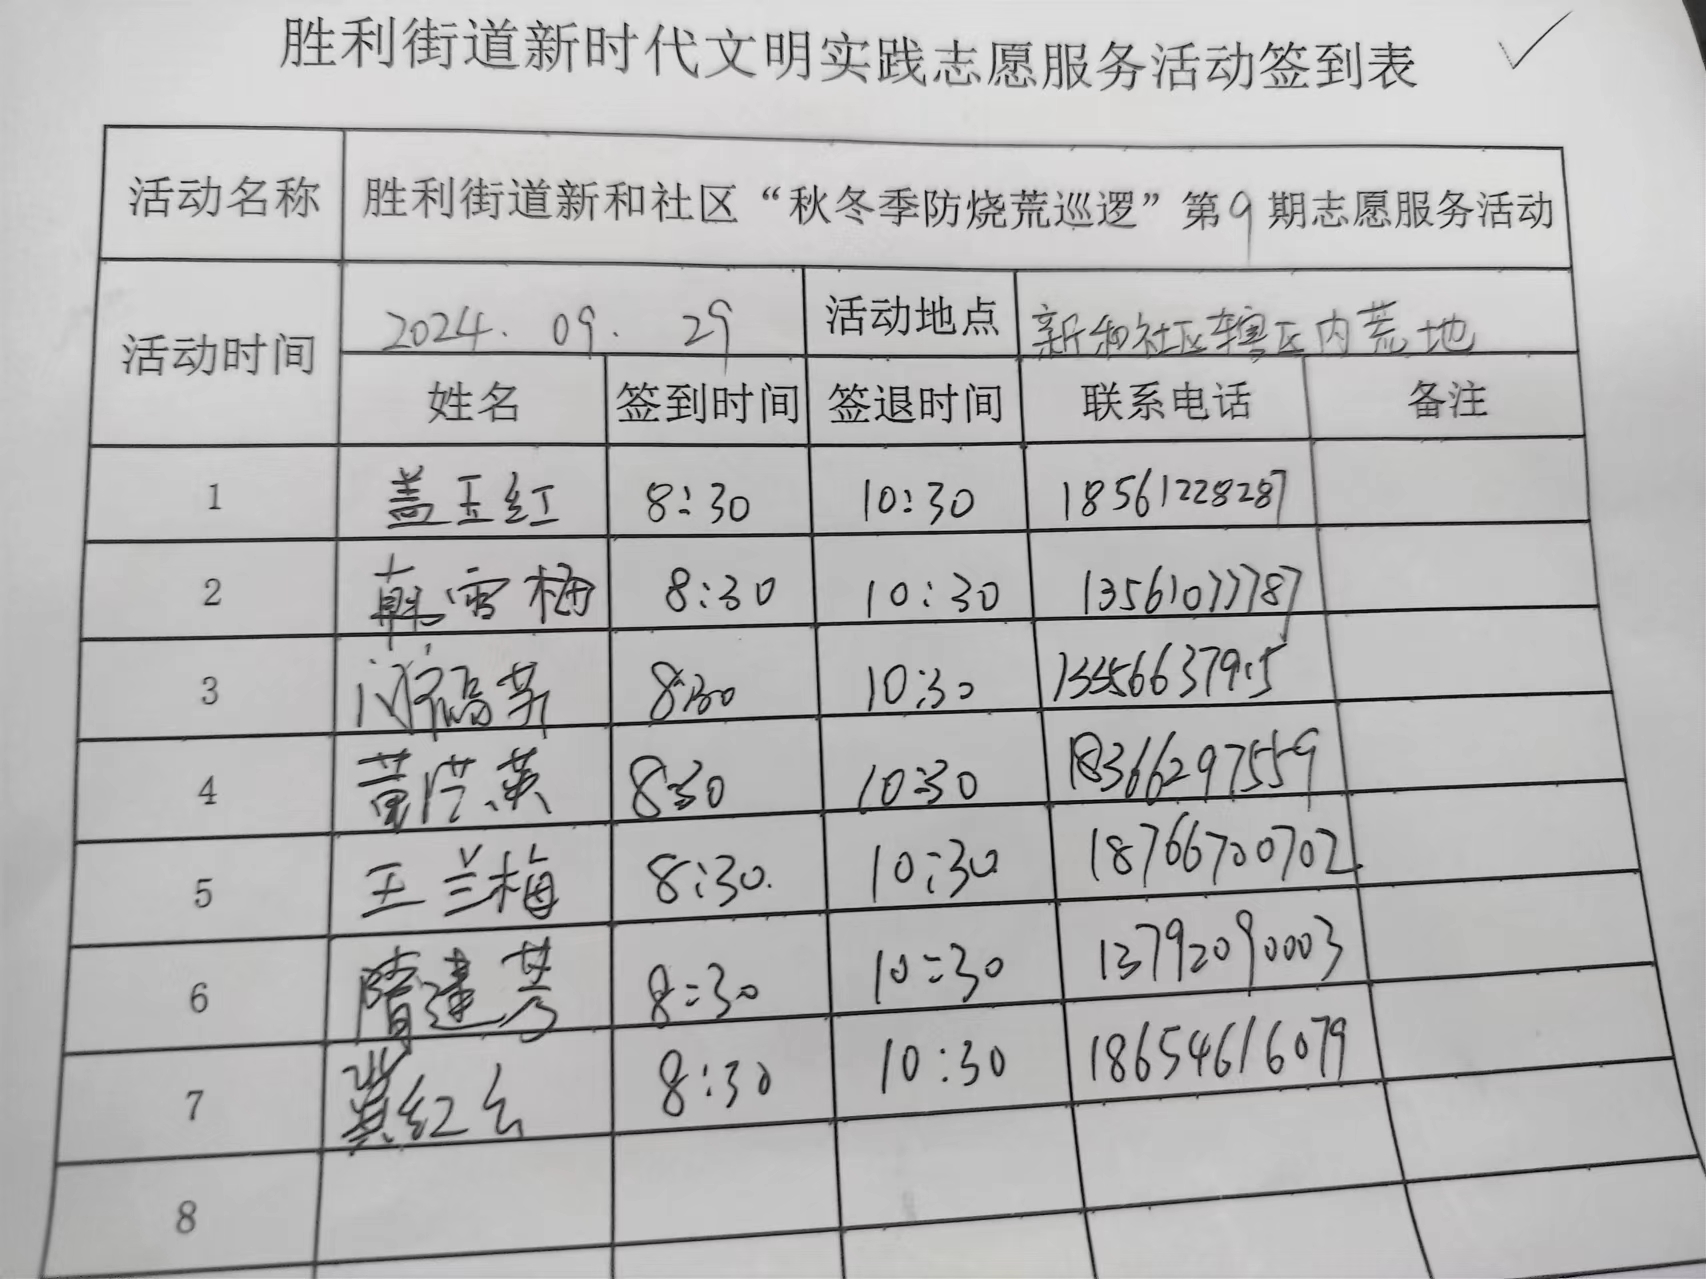 胜利街道新时代文明实践志愿服务活动签到表
活动名称 胜利街道新和社区“秋冬季防烧荒巡逻”第9期志愿服务活动
活动时间 2024. 09. 29 活动地点 新和社区辖区内荒地
姓名 签到时间 签退时间 联系电话 备注
1 盖玉红 8:30 10:30 18561228287
2 韩雪梅 8:30 10:30 13561077787
3 8:30 10:30
4 8:30 10:30 18366297559
5 王兰梅 8:30 10:30 18766700702
6 隋建芳 8:30 10:30 13792090003
7 8:30 10:30 18654616079
8